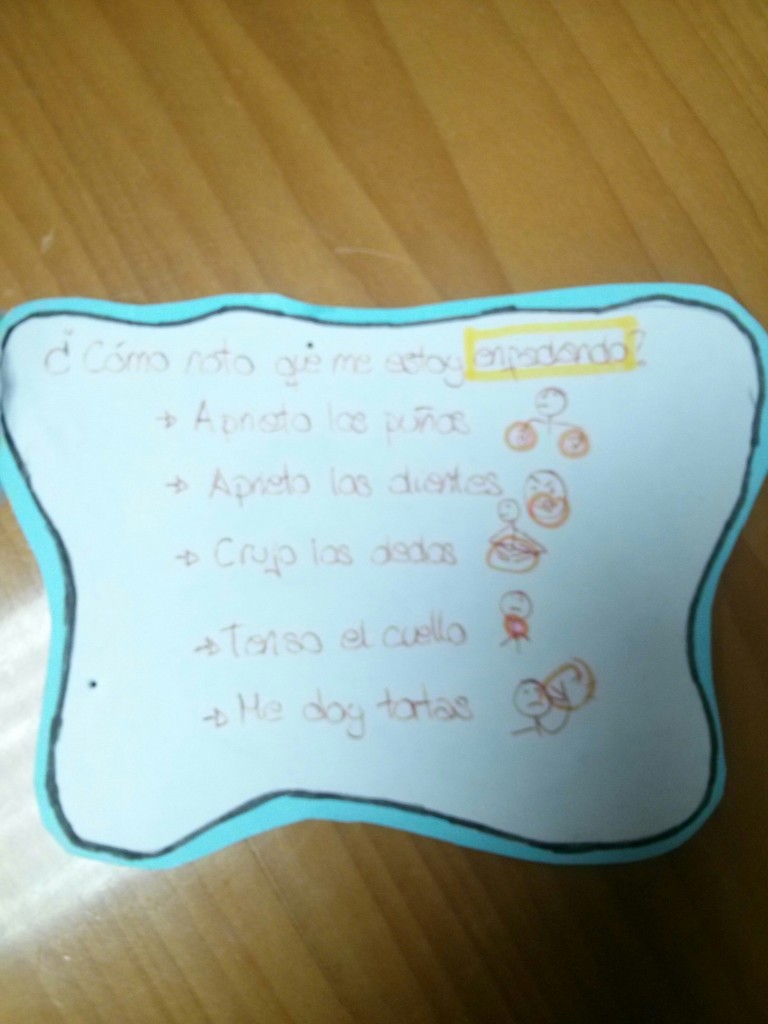 ¿Cómo noto que me estoy enfadando?
→ Aprieto los puños
→ Aprieto los dientes
→ Crujo los dedos
→ Tenso el cuello
→ Me doy tortas